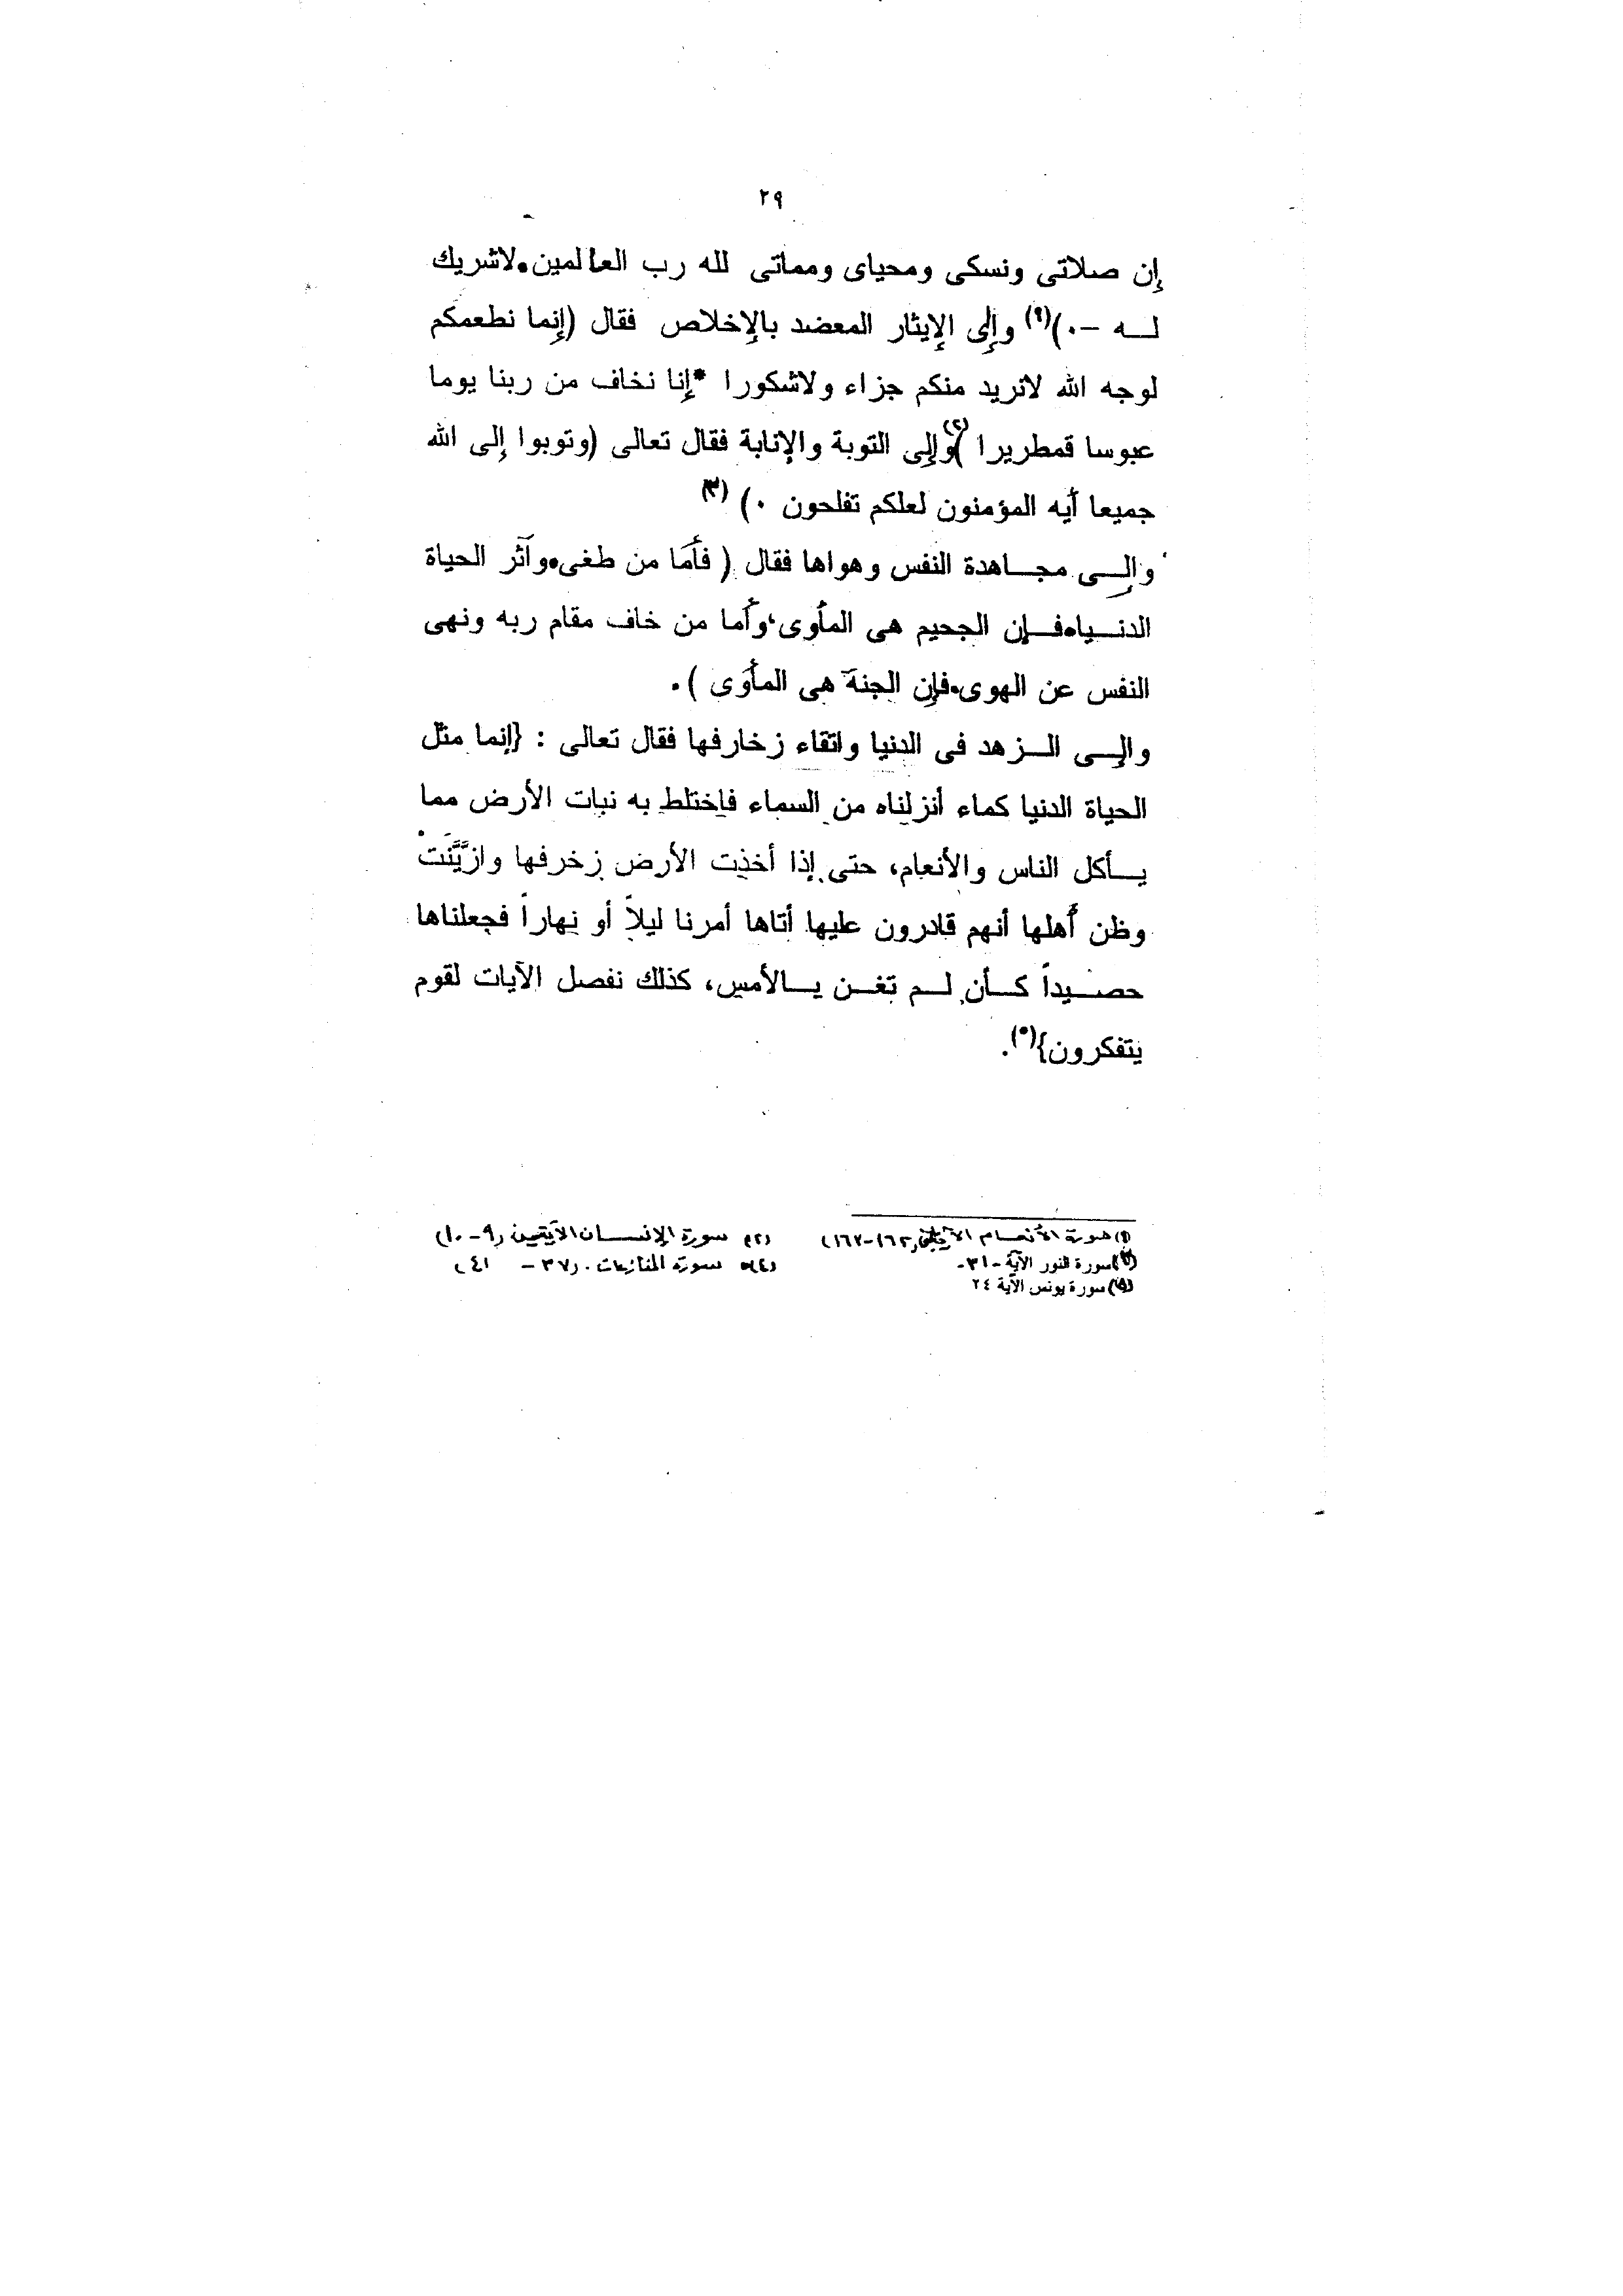 ٢٩
إن صلاتى ونسكى ومحياى ومماتى لله رب العالمين٠لاشريك
لـه -٠)(١) وإلى الإيثار المعضد بالإخلاص فقال (إنما نطعمكم
لوجه الله لانريد منكم جزاء ولاشكورا *إنا نخاف من ربنا يوما
عبوسا قمطريرا )(٢)وإلى التوبة والإنابة فقال تعالى (وتوبوا إلى الله
جميعا أيه المؤمنون لعلكم تفلحون ٠) (٣)
وإلـى مجـاهدة النفس وهواها فقال ( فأما من طغى٠وآثر الحياة
الدنـيا٠فـإن الجحيم هى المأوى،وأما من خاف مقام ربه ونهى
النفس عن الهوى٠فإن الجنة هى المأوى )٠
وإلـى الـزهد فى الدنيا واتقاء زخارفها فقال تعالى : {إنما مثل
الحياة الدنيا كماء أنزلناه من السماء فاختلط به نبات الأرض مما
يـأكل الناس والأنعام، حتى إذا أخذت الأرض زخرفها وازَّيَّنَتْ
وظن أهلها أنهم قادرون عليها أتاها أمرنا ليلاً أو نهاراً فجعلناها
حصـيداً كـأن لـم تغـن يـالأمس، كذلك نفصل الآيات لقوم
يتفكرون}(٥).
(١) سورة الأنعـام (١٦٢-١٦٣)
(٢) سورة الإنسـان الآيتين (٩-١٠)
(٣) سورة النور الآية -٣١-
(٤) سورة النازعات ٠(٣٧ - ٤١)
(٥) سورة يونس الآية ٢٤